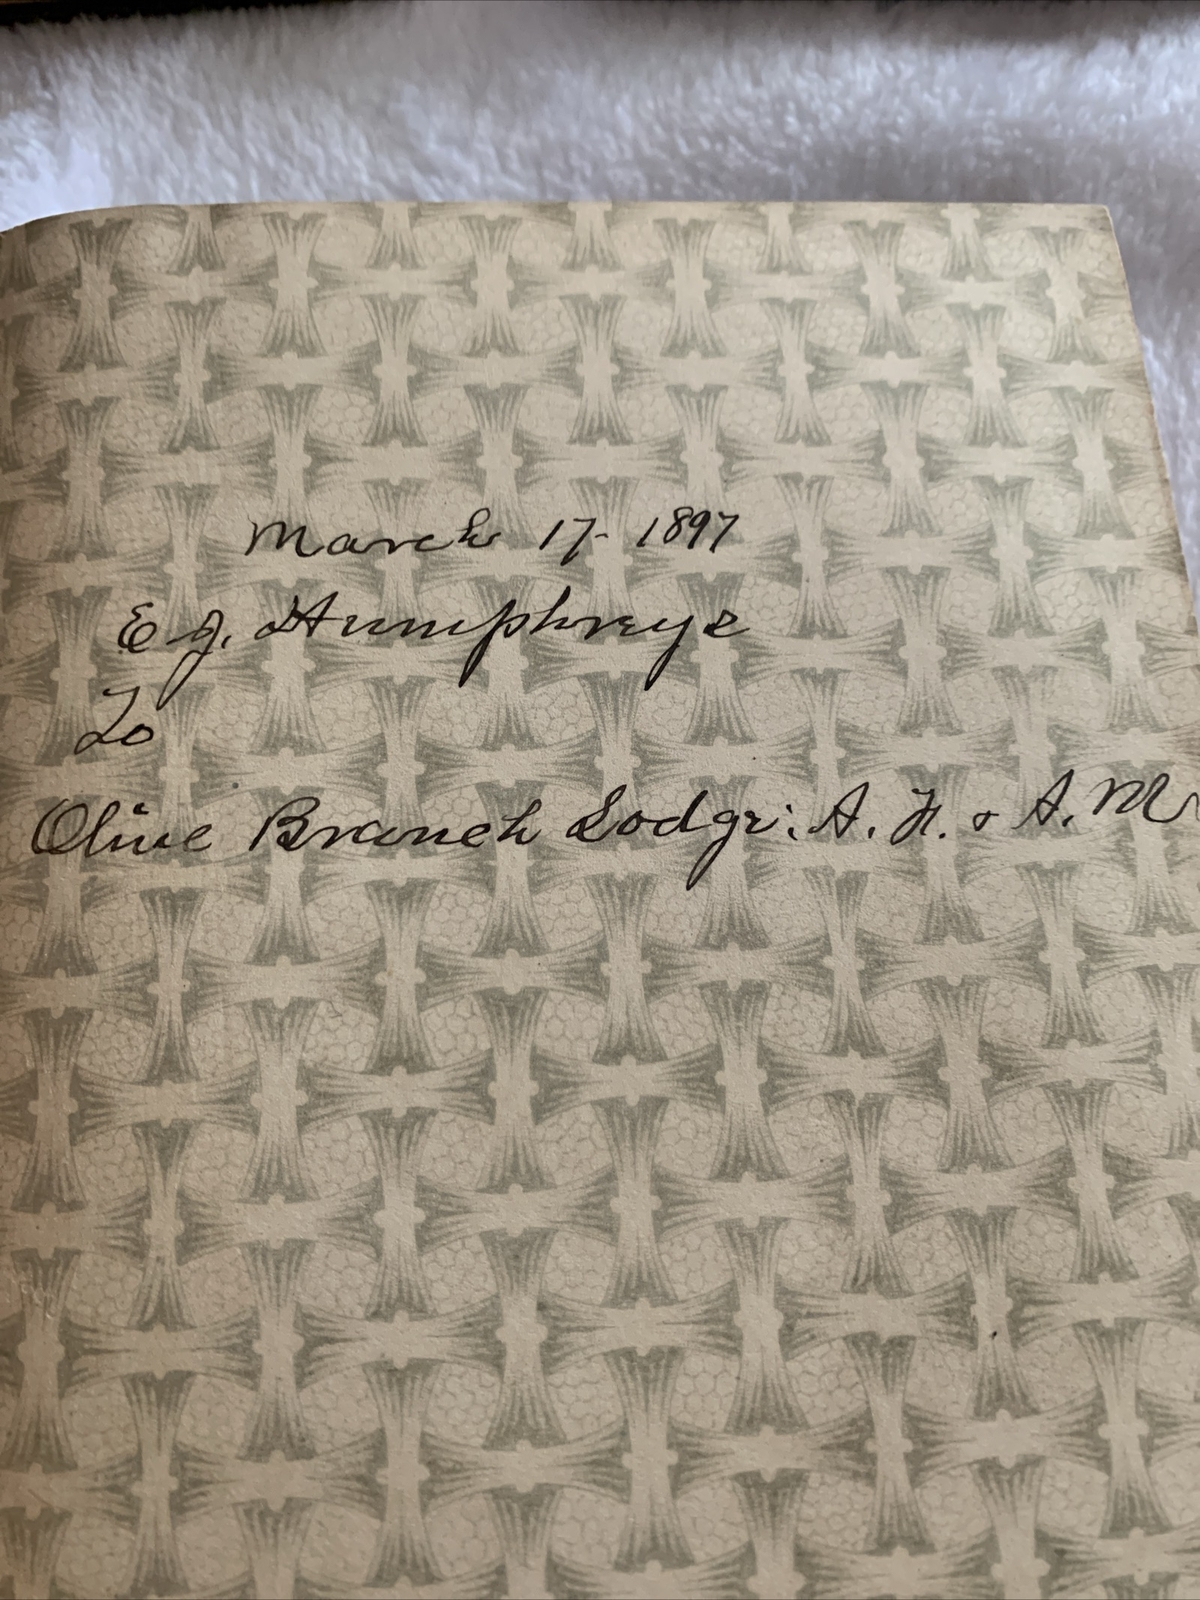 March 17- 1897
E. J. Humphreys
To
Olive Branch Lodge: A. F. & A. M